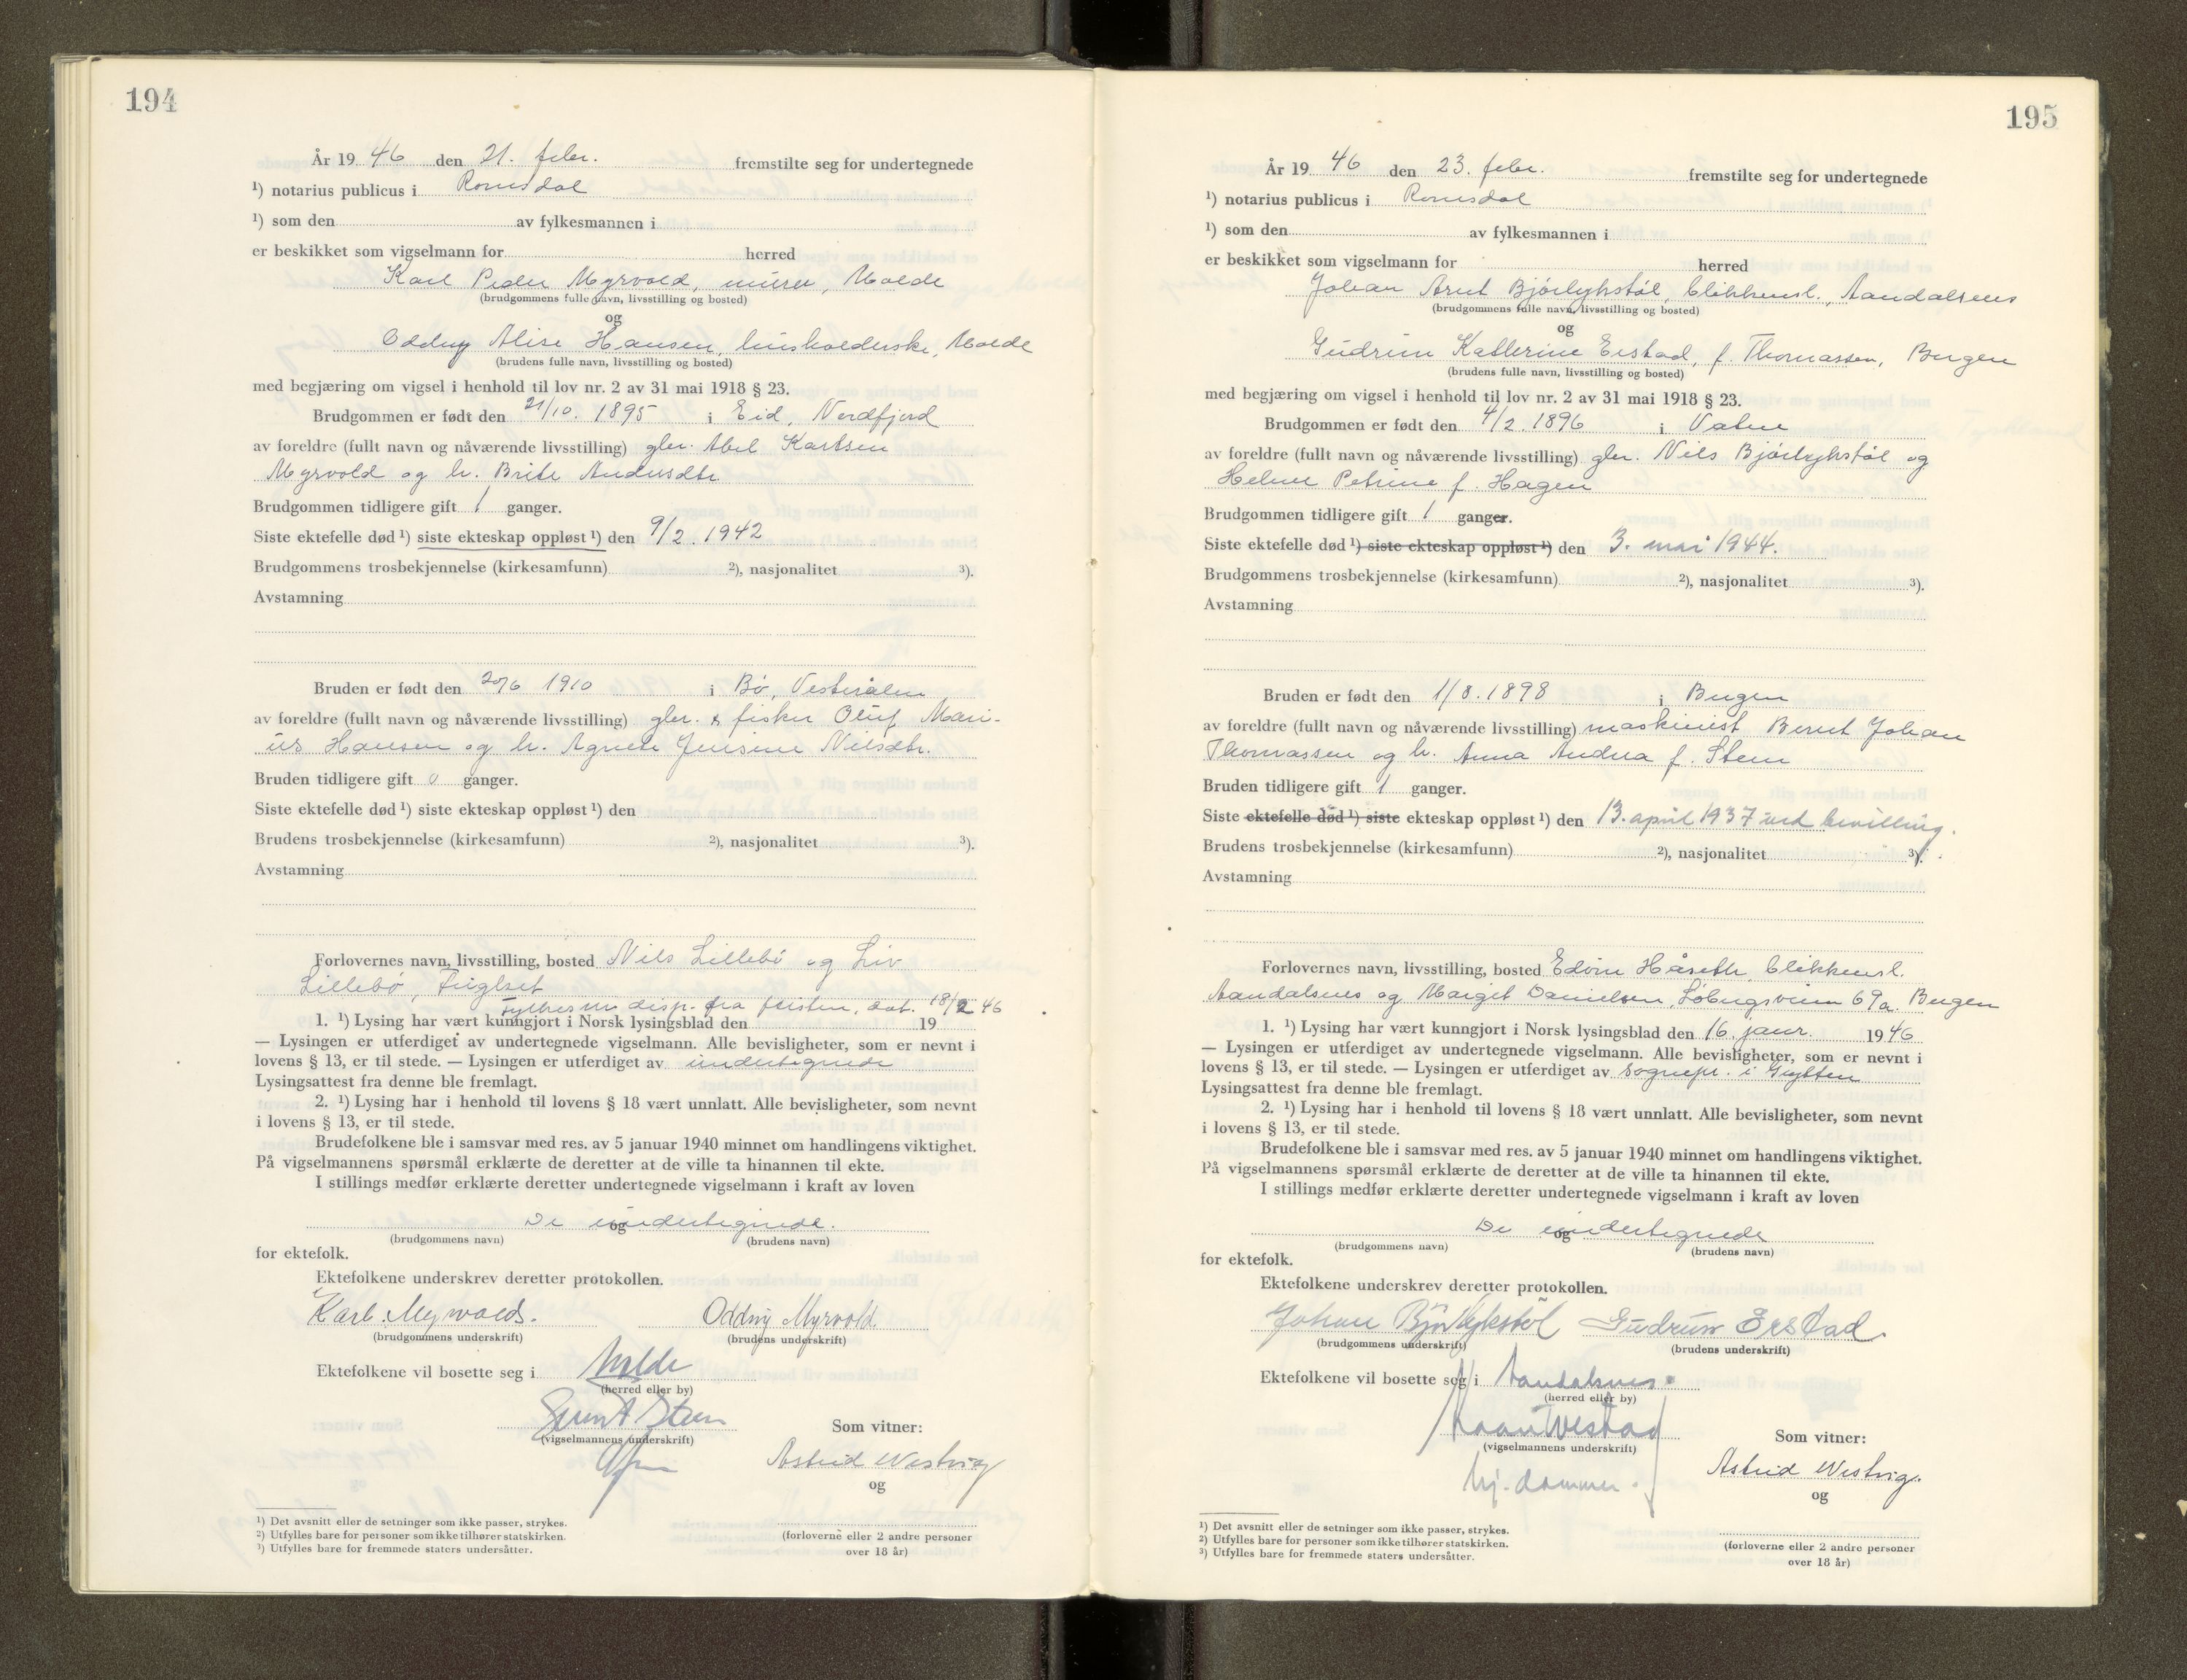 194
År 1946 den 21. febr. fremstilte seg for undertegnede
¹) notarius publicus i Romsdal
¹) som den av fylkesmannen i
er beskikket som vigselmann for herred
Karl Peder Myrvold, murer, Molde
(brudgommens fulle navn, livsstilling og bosted)
og
Oddny Alise Hansen, husholderske, Molde
(brudens fulle navn, livsstilling og bosted)
med begjæring om vigsel i henhold til lov nr. 2 av 31 mai 1918 § 23.
Brudgommen er født den 21/10. 1895 i Eid, Nordfjord
av foreldre (fullt navn og nåværende livsstilling) gbr. Abel Karlsen
Myrvold og h. Brite Andersdtr
Brudgommen tidligere gift 1 ganger.
Siste ektefelle død ¹) siste ekteskap oppløst ¹) den 9/2. 1942
Brudgommens trosbekjennelse (kirkesamfunn) ²), nasjonalitet ³).
Avstamning
Bruden er født den 20/6 1910 i Bø, Vesterålen
av foreldre (fullt navn og nåværende livsstilling) gbr. & fisker Oluf Mari-
us Hansen og h. Agnete Jensine Nilsdtr.
Bruden tidligere gift 0 ganger.
Siste ektefelle død ¹) siste ekteskap oppløst ¹) den
Brudens trosbekjennelse (kirkesamfunn) ²), nasjonalitet ³).
Avstamning
Forlovernes navn, livsstilling, bosted Nils Lillebø og Liv
Lillebø, Fuglset
Fylkesm disp. fra fristen, dat. 18/2 46
1. ¹) Lysing har vært kunngjort i Norsk lysingsblad den 19
— Lysingen er utferdiget av undertegnede vigselmann. Alle bevisligheter, som er nevnt i
lovens § 13, er til stede. — Lysingen er utferdiget av undertegnede
Lysingsattest fra denne ble fremlagt.
2. ¹) Lysing har i henhold til lovens § 18 vært unnlatt. Alle bevisligheter, som nevnt
i lovens § 13, er til stede.
Brudefolkene ble i samsvar med res. av 5 januar 1940 minnet om handlingens viktighet.
På vigselmannens spørsmål erklærte de deretter at de ville ta hinannen til ekte.
I stillings medfør erklærte deretter undertegnede vigselmann i kraft av loven
De undertegnede.
og
(brudgommens navn) (brudens navn)
for ektefolk.
Ektefolkene underskrev deretter protokollen.
Karl Myrvold. Oddny Myrvold
(brudgommens underskrift) (brudens underskrift)
Ektefolkene vil bosette seg i Molde
(herred eller by)
(vigselmannens underskrift) Som vitner:
Astrid Westvig
og
¹) Det avsnitt eller de setninger som ikke passer, strykes.
²) Utfylles bare for personer som ikke tilhører statskirken.
³) Utfylles bare for fremmede staters undersåtter.
(forloverne eller 2 andre personer
over 18 år)
195
År 1946 den 23. febr. fremstilte seg for undertegnede
¹) notarius publicus i Romsdal
¹) som den av fylkesmannen i
er beskikket som vigselmann for herred
Johan Arnt Bjørlykstøl, blikkensl., Aandalsnes
(brudgommens fulle navn, livsstilling og bosted)
og
Gudrun Katherine Erstad, f. Thomassen, Bergen
(brudens fulle navn, livsstilling og bosted)
med begjæring om vigsel i henhold til lov nr. 2 av 31 mai 1918 § 23.
Brudgommen er født den 4/2. 1896 i Vatne
av foreldre (fullt navn og nåværende livsstilling) gbr. Nils Bjørlykstøl og
Helene Petrine f. Hagen
Brudgommen tidligere gift 1 ganger.
Siste ektefelle død ¹) siste ekteskap oppløst ¹) den 3. mai 1944.
Brudgommens trosbekjennelse (kirkesamfunn) ²), nasjonalitet ³).
Avstamning
Bruden er født den 1/8. 1898 i Bergen
av foreldre (fullt navn og nåværende livsstilling) maskinist Bernt Johan
Thomassen og h. Anna Andrea f. Steen
Bruden tidligere gift 1 ganger.
Siste ektefelle død ¹) siste ekteskap oppløst ¹) den 13. april 1937 ved bevilling.
Brudens trosbekjennelse (kirkesamfunn) ²), nasjonalitet ³).
Avstamning
Forlovernes navn, livsstilling, bosted Edvin Håseth, blikkensl.
Aandalsnes og Margit Danielsen, 69a. Bergen
1. ¹) Lysing har vært kunngjort i Norsk lysingsblad den 16. januar. 1946
— Lysingen er utferdiget av undertegnede vigselmann. Alle bevisligheter, som er nevnt i
lovens § 13, er til stede. — Lysingen er utferdiget av sognepr. i Grytten
Lysingsattest fra denne ble fremlagt.
2. ¹) Lysing har i henhold til lovens § 18 vært unnlatt. Alle bevisligheter, som nevnt
i lovens § 13, er til stede.
Brudefolkene ble i samsvar med res. av 5 januar 1940 minnet om handlingens viktighet.
På vigselmannens spørsmål erklærte de deretter at de ville ta hinannen til ekte.
I stillings medfør erklærte deretter undertegnede vigselmann i kraft av loven
De undertegnede
og
(brudgommens navn) (brudens navn)
for ektefolk.
Ektefolkene underskrev deretter protokollen.
Johan Bjørlykstøl Gudrun Erstad.
(brudgommens underskrift) (brudens underskrift)
Ektefolkene vil bosette seg i Aandalsnes.
(herred eller by)
(vigselmannens underskrift) Som vitner:
hj. dommer. Astrid Westvig.
og
¹) Det avsnitt eller de setninger som ikke passer, strykes.
²) Utfylles bare for personer som ikke tilhører statskirken.
³) Utfylles bare for fremmede staters undersåtter.
(forloverne eller 2 andre personer
over 18 år)